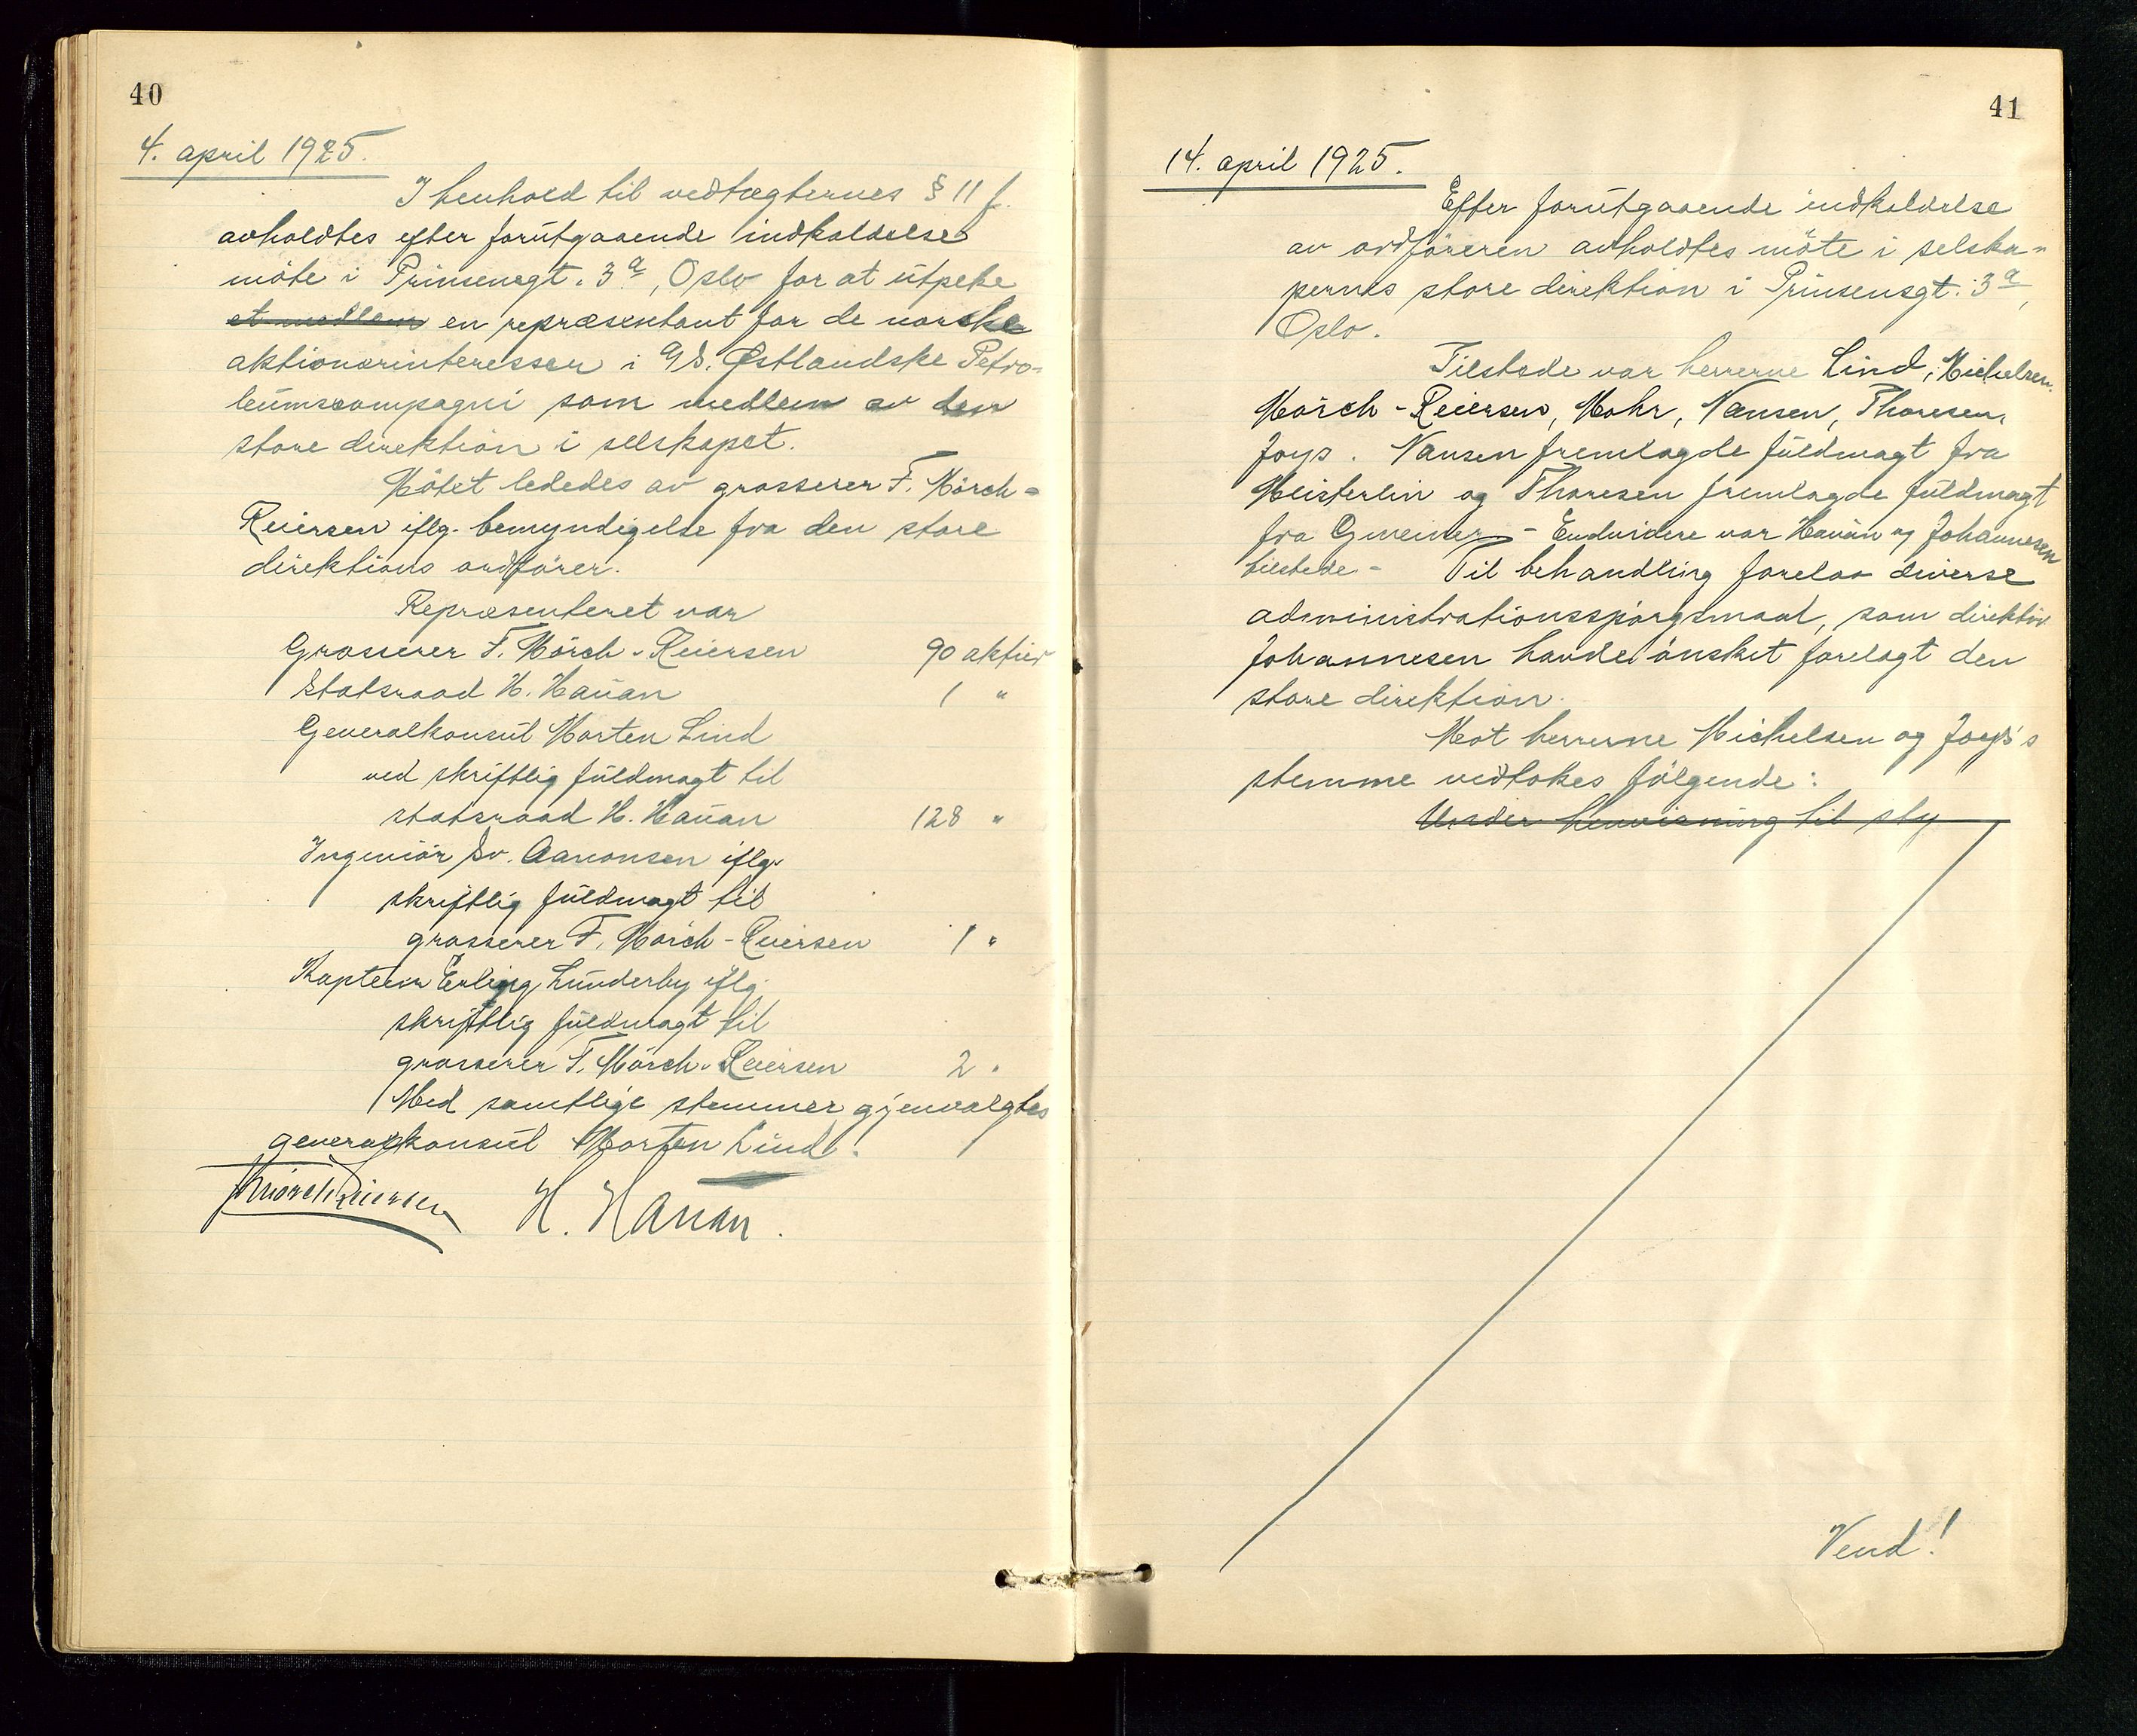 40
4. april 1925.
I henhold til vedtægternes § 11 f.
avholdtes efter forutgaaende indkaldelse
möte i Prinsensgt. 3a, Oslo for at utpeke
et medlem en repræsentant for de norske
aktionærinteresser i A/S. Østlandske Petro-
leumscompagni som medlem av den
store direktion i selskapet.
Mötet lededes av grosserer F. Mörch-
Reiersen iflg. bemyndigelse fra den store
direktions ordförer.
Repræsenteret var
Grosserer F. Mörch-Reiersen 90 aktier
Statsraad H. Hauan 1 "
Generalkonsul Morten Lind
ved skriftlig fuldmagt til
statsraad H. Hauan 128 "
Ingeniör Sv. Aanonsen iflg.
skriftlig fuldmagt til
grosserer F. Mörch-Reiersen 1 "
Kaptein Erling Lunderby iflg.
skriftlig fuldmagt til
grosserer F. Mörch-Reiersen 2 "
Med samtlige stemmer gjenvalgtes
generalkonsul Morten Lind.
F Mörch Reiersen H. Hauan.
41
14. april 1925.
Efter forutgaaende indkaldelse
av ordföreren avholdtes möte i selska-
pernes store direktion i Prinsensgt. 3a,
Oslo.
Tilstede var herrerne Lind, Michelsen,
Mörch-Reiersen, Mohr, Nansen, Thoresen,
Joys. Nansen fremlagde fuldmagt fra
Meisterlin og Thoresen fremlagde fuldmagt
fra Gmeiner - Endvidere var Hauan og Johannesen
tilstede - Til behandling forelaa diverse
administrationsspörgsmaal, som direktör
Johannesen havde önsket forelagt den
store direktion.
Mot herrerne Michelsen og Joys's
stemme vedtokes fölgende:
Under henvisning til sty
Vend!